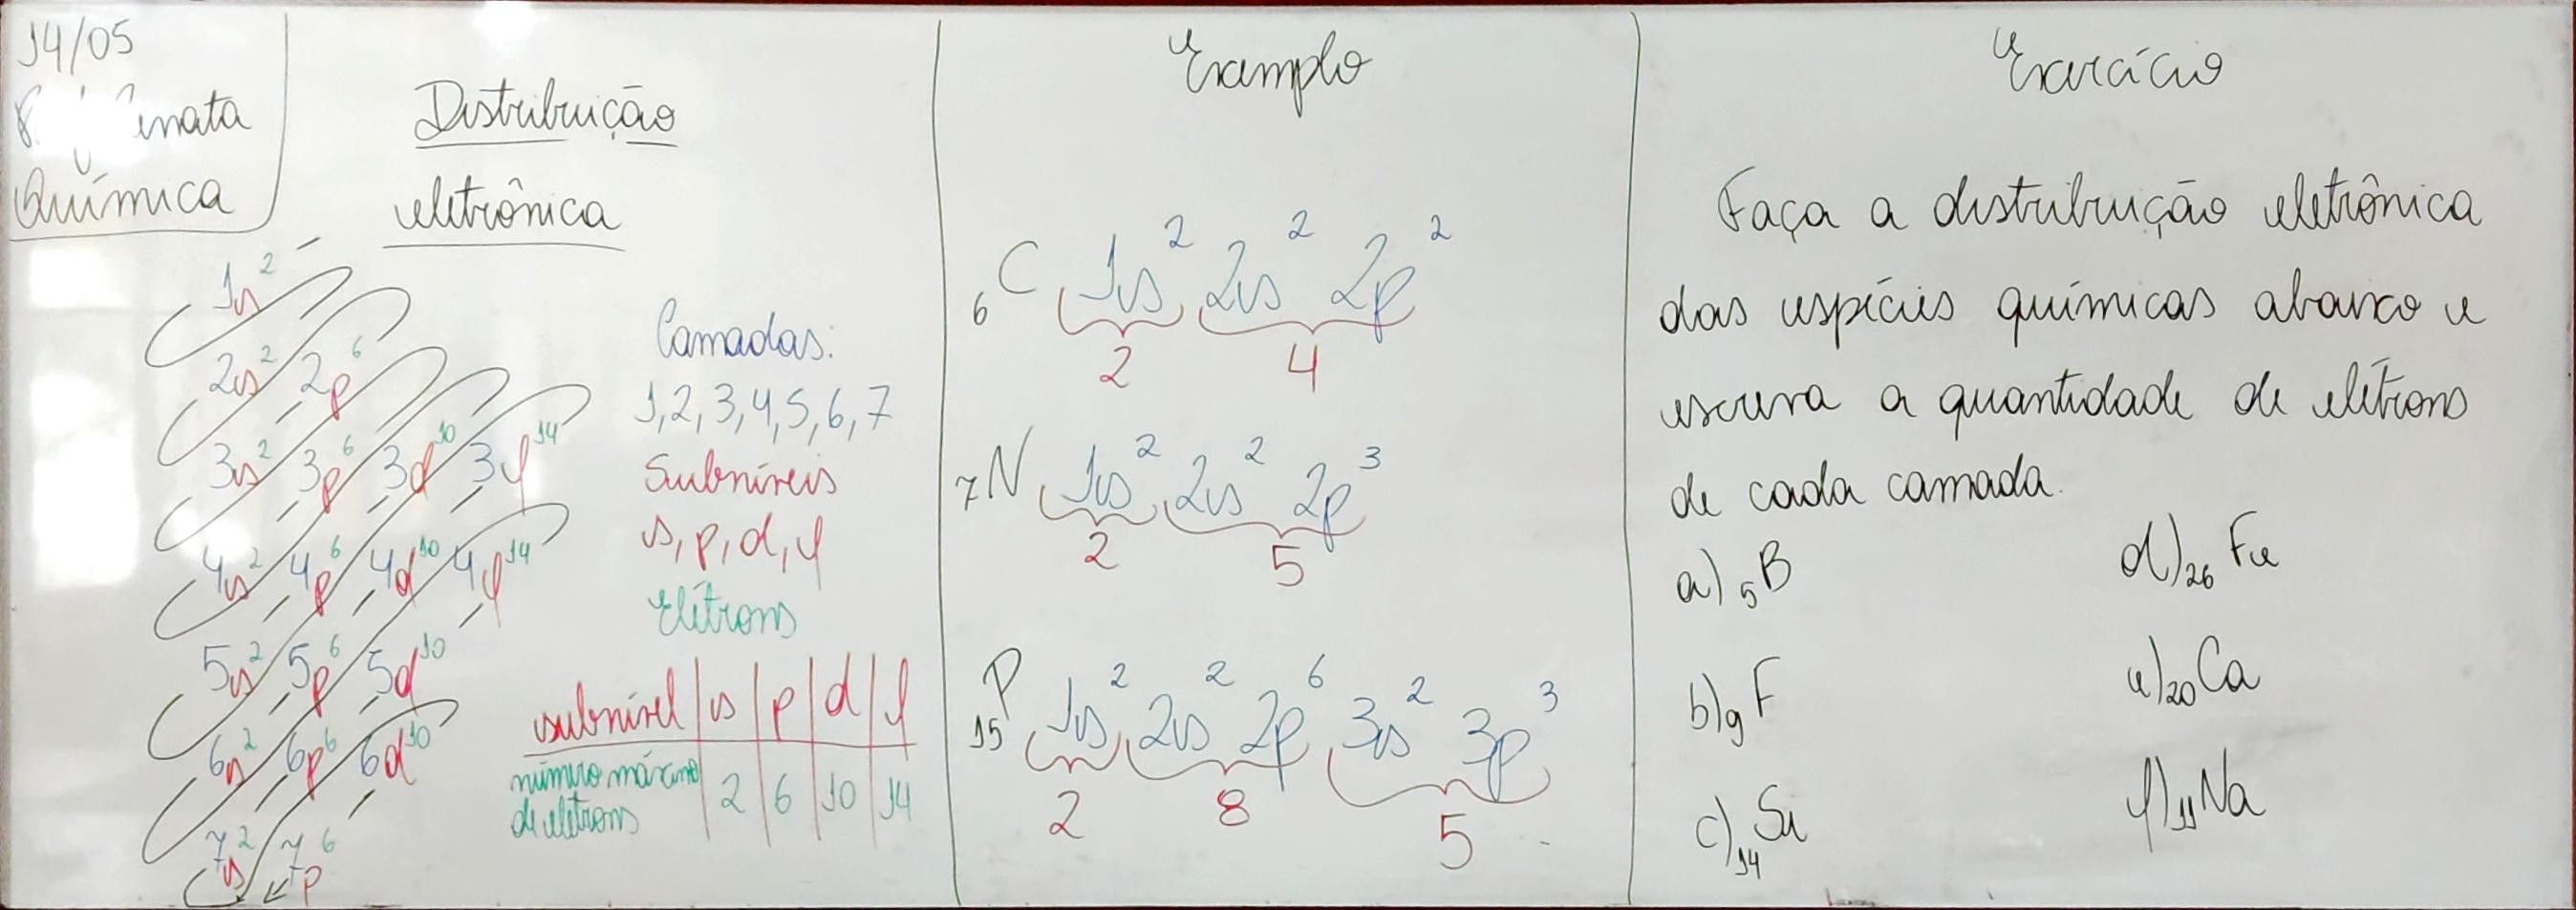 14/05
Química
Distribuição
eletrônica
1s²
2s² 2p⁶
3s² 3p⁶ 3d¹⁰ 3f¹⁴
4s² 4p⁶ 4d¹⁰ 4f¹⁴
5s² 5p⁶ 5d¹⁰
6s² 6p⁶ 6d¹⁰
7s² 7p⁶
Camadas:
1, 2, 3, 4, 5, 6, 7
Subníveis
s, p, d, f
Elétrons
subnível s p d f
número máximo
de elétrons 2 6 10 14
Exemplo
₆C 1s² 2s² 2p²
2 4
₇N 1s² 2s² 2p³
2 5
₁₅P 1s² 2s² 2p⁶ 3s² 3p³
2 8 5
Exercício
Faça a distribuição eletrônica
das espécies químicas abaixo e
escreva a quantidade de elétrons
de cada camada.
a) ₅B
b) ₉F
c) ₁₄Si
d) ₂₆Fe
e) ₂₀Ca
f) ₁₁Na